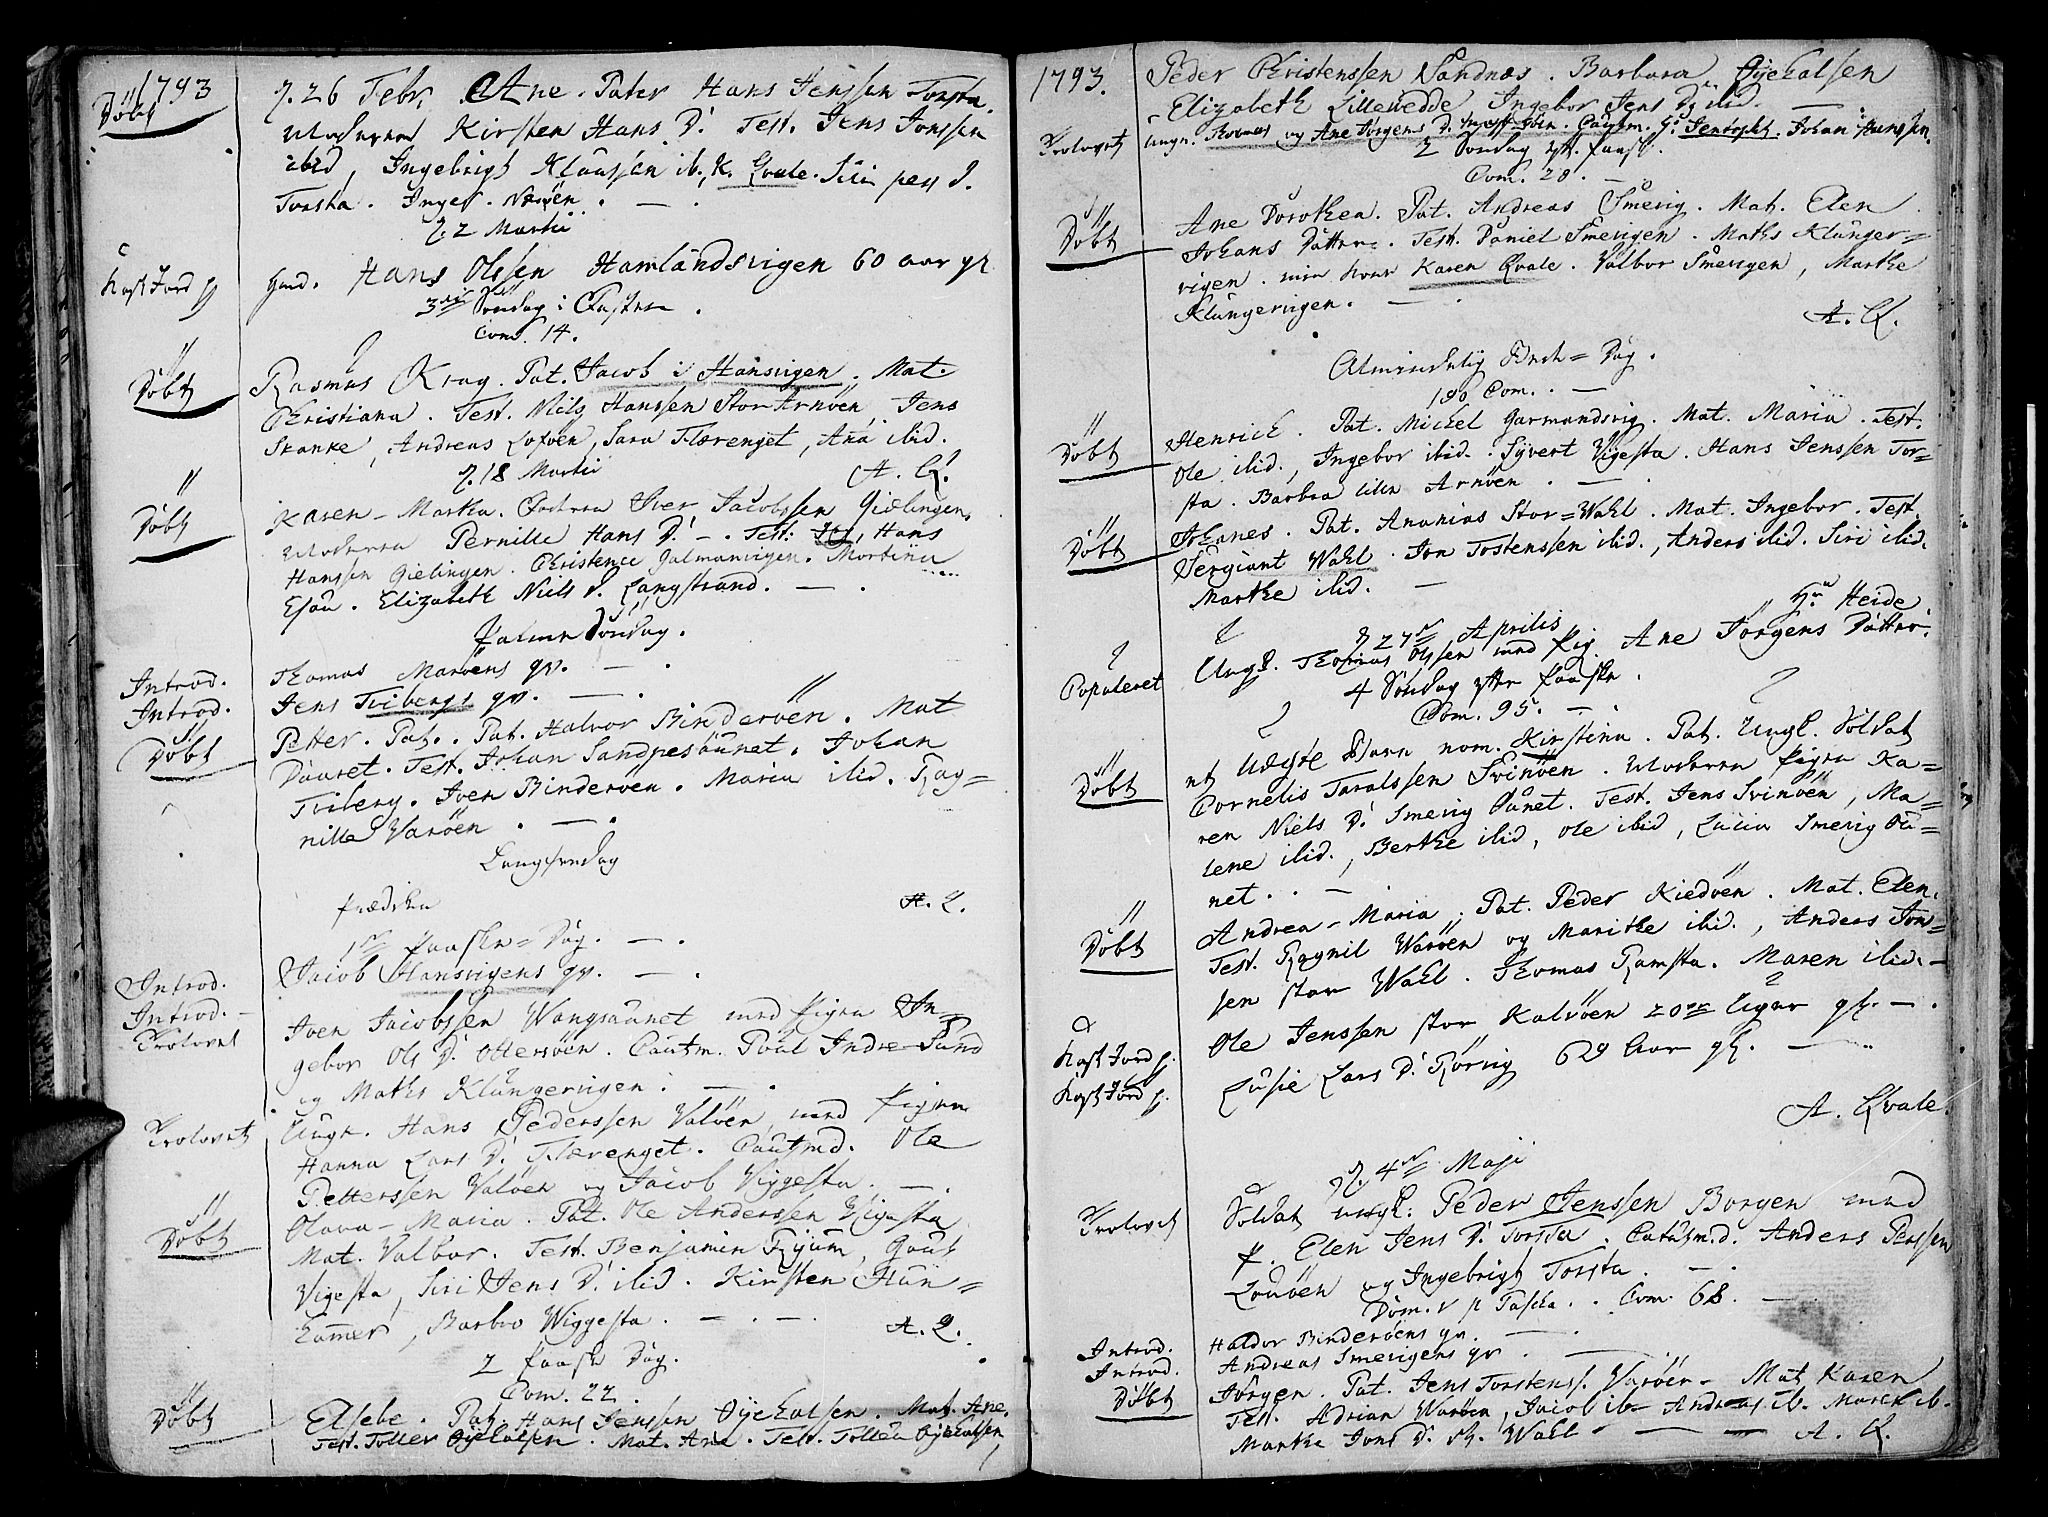 1793
Döbt
d. 26 Febr. Ane. Pater Hans Jenssen Torsta.
Moderen Kirsten Hans D. Test. Jens Jonssen
ibid, Ingebrigt Klaussen ib., K. Qvale. Siri pers D.
Torsta. Inger Næröen. —
d. 2 Martii
Kast Jord p
Hans Olssen Hamlandsvigen 60 aar gl
3die Söndag i Fasten.
Com. 14.
Döbt
Rasmus Krag. Pat. Jacob i Hansvigen. Mat.
Christiana. Test. Niels Hanssen Stor Arnöen, Jens
Skanke, Andreas Lofoen, Sara Flærenget, Ana ibid.
d. 18 Martii A. Q.
Döbt
Karen-Marta. Faderen Iver Jacobssen Gielingen.
Moderen Pernille Hans D. —. Test: Hans
Hanssen Gielingen. Christence Jalmanvigen. Mortinu
Esau. Elizabeth Niels D. Langstrand. — .
Palme Söndag.
Introd. Thomas Maröens qv. — .
Introd. Jens Tvibergs qv. — .
Döbt
Petter. Pat. Pat. Halvor Binderöen. Mat
Daaret. Test. Johan Sandnesaunet. Johan
Tviberg. Iven Binderöen. Maria ibid. Rag=
nille Varöen. — .
Langfredag
prædiken A. Q.
1ste Paaske=Dag. — .
Introd. Jacob Hansvigens qv. — .
Introd. —
Trolovet
Iven Jacobssen Wangsaunet med Pigen In=
gebor Ols D. Ottersöen. Cautm. Poul Indre-Sund
og Maths Klungervigen. — .
Trolovet Ungk. Hans Pederssen Valöen med Pigen
Hanna Lars D. Flærenget. Cautmd. Ole
Petterssen Valöen og Jacob Viggesta. — .
Döbt
Olava-Maria. Pat. Ole Anderssen Vigesta
Mat. Valbor. Test. Benjamin Ryum, Gout
Vigesta, Siri Jens D. ibid. Kirsten Hun=
hammer, Barbro Wiggesta. — . — . A. Q.
2 Paaske Dag.
Com. 22.
Döbt
Elsebe. Pat. Hans Jenssen Öyehalsen. Mat. Ane.
Test. Toller Öyehalsen. Mat. Ane. Test. Tollev Öyehalsen
1793.
Peder Christenssen Sandnæs. Barbara Öyehalsen
Elizabeth Lillewedde, Ingebor Jens D. ibid. —
Trolovet Ungk. Thomas og Ane Jörgens D. Cautm. Johan Hanssen.
2 Söndag eft. Paask.
Com. 28. —
Döbt
Ane Dorothea. Pat. Andreas Smevig. Mat. Elen
Johans Datter. Test. Daniel Smevigen. Maths Klunger=
vigen. min kone Karen Qvale. Valbor Smevigen, Marthe
Klungervigen. — .
A. Q.
Almindelig Bede=Dag.
190 Com. —
Döbt
Henrich. Pat. Michel Garmandsvig. Mat. Maria. Test.
Ole ibid., Ingebor ibid. Syvert Vigesta. Hans Jenssen Tor=
sta. Barbra lille Arnöen. — .
Döbt
Johanes. Pat. Ananias Stor=Wahl. Mat. Ingebor. Test.
Sergiant Wahl. Jon Tostenssen ibid., Anders ibid. Siri ibid.
Marthe ibid. —
Hr. Heide.
d 27de Aprilis
Copuleret Ungk. Thomas Olssen med Pig. Ane Jörgens Datter.
4 Söndag efter Paaske.
Com. 95. — .
Döbt
et Uægte Barn nom. Kirstina. Pat. Ungk. Soldat
Cornelis Taralssen Svinöen. Moderen Pigen Ka=
ren Niels D. Smevig Aunet. Test. Jens Svinöen, Ma=
lene ibid., Berthe ibid, Ole ibid, Lucia Smevig Au=
net. . —
Döbt
Andrea-Maria. Pat. Peder Kiedöen. Mat. Elen.
Test. Ragnil Waröen og Marithe ibid., Anders Jons=
sen stor Wahl. Thomas Ramsta. Maren ibid. —
Kast Jord p. Ole Jenssen stor Kalvöen 20 Uger gl. — .
Kast Jord p. Lusie Lars D. Rörvig 629 Aar gl. —
A. Qvale.
d. 4de Maji
Trolovet Soldat ungk. Peder Jenssen Borgen med
P. Elen Jens D. Torsta. Cautm.d. Anders Perssen
Louöen og Ingebrigt Torsta. — .
Dom. V p Pascha. . Com. 68. —
Introd. Haldor Binderöens qv. — .
Introd. Andreas Smevigens qv. —
Döbt
Jörgen. Pat. Jens Torstens. Varöen — Mat. Karen
Test. Adrian Waröen, Jacob ib — Andreas ib. Maren ib.
Marthe Jons D. St. Wahl — — A. Q.